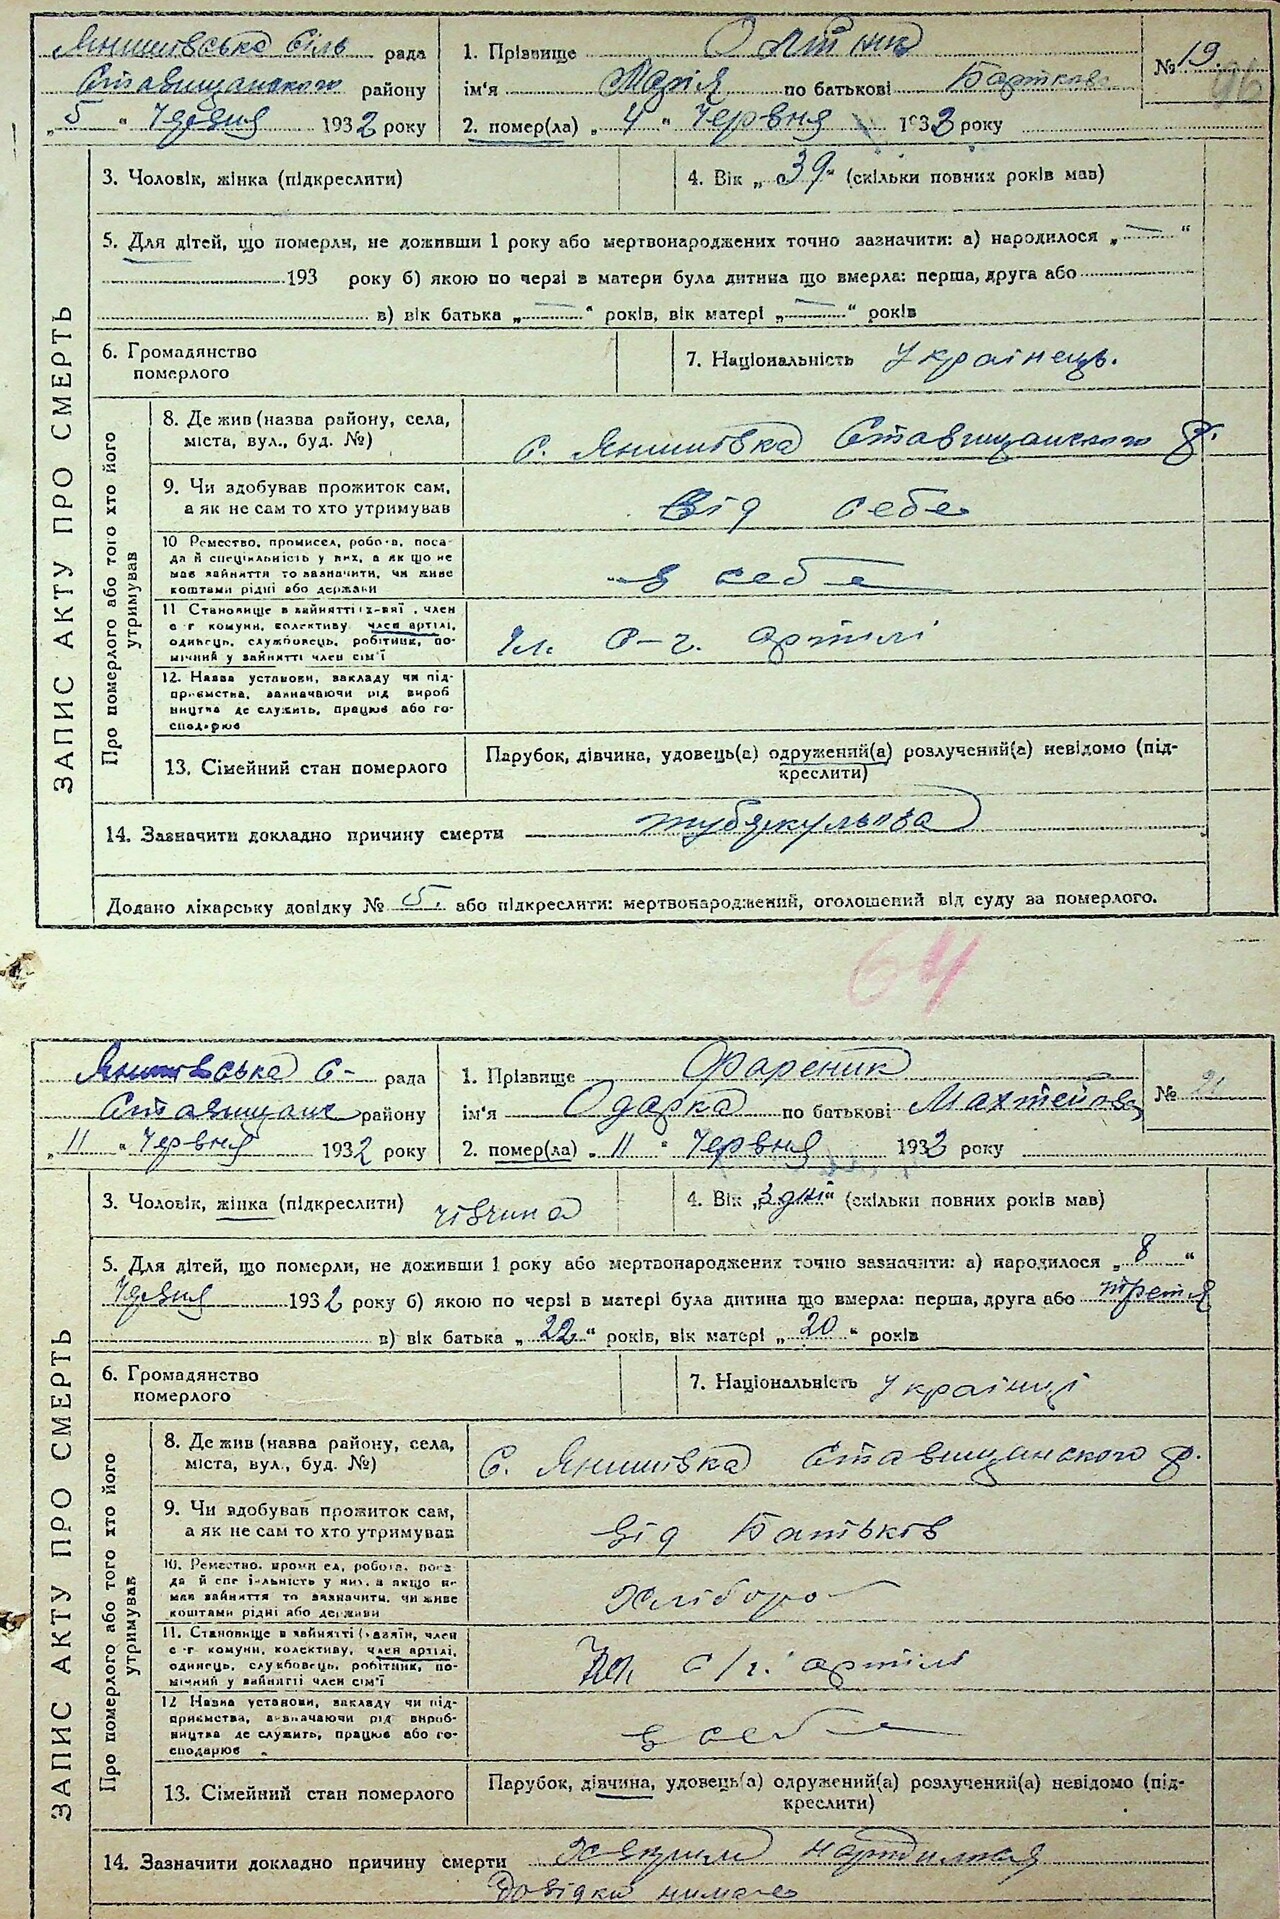 Янишівська сіль рада
1. Прізвище Олійник
№ 19.
96
Ставищанского району
ім'я Марія по батькові Барткова
„ 5 “ Червня 1932 року
2. помер(ла) „ 4 “ Червня 1932 року
ЗАПИС АКТУ ПРО СМЕРТЬ
3. Чоловік, жінка (підкреслити)
4. Вік „ 39 “ (скільки повних років мав)
5. Для дітей, що померли, не доживши 1 року або мертвонароджених точно зазначити: а) народилося „ — “
193 року б) якою по черзі в матери була дитина що вмерла: перша, друга або
в) вік батька „ — “ років, вік матері „ — “ років
6. Громадянство
померлого
7. Національність Українець.
Про померлого або того хто його
утримував
8. Де жив (назва району, села,
міста, вул., буд. №)
с. Янишівка Ставищанского р.
9. Чи здобував прожиток сам,
а як не сам то хто утримував
Від себе
10 Ремество, промисел, робота, поса-
да й спеціяльність у них, а як що не
мав зайняття то зазначити, чи живе
коштами рідні або держави
в себе
11 Становище в зайнятті х-вяї, член
с-г комуни, колективу, член артілі,
одинець, службовець, робітник, по-
мічний у зайнятті член сім'ї
Чл. с-г. артілі
12. Назва установи, закладу чи під-
приємства, зазначаючи рід вироб
ництва де служить, працює або го-
сподарює
13. Сімейний стан померлого
Парубок, дівчина, удовець(а) одружений(а) розлучений(а) невідомо (під-
креслити)
14. Зазначити докладно причину смерти тубяркульоза
Додано лікарську довідку № 5. або підкреслити: мертвонароджений, оголошений від суду за померлого.
64
Янишівська с- рада
1. Прізвище Фареник
№ 21
Ставищанс району
ім'я Одарка по батькові Махтейова
„ 11 “ Червня 1932 року
2. помер(ла) „ 11 “ Червня 1932 року
ЗАПИС АКТУ ПРО СМЕРТЬ
3. Чоловік, жінка (підкреслити) дівчина
4. Вік „ 3 дні “ (скільки повних років мав)
5. Для дітей, що померли, не доживши 1 року або мертвонароджених точно зазначити: а) народилося „ 8 “
Червня 1932 року б) якою по черзі в матері була дитина що вмерла: перша, друга або третя
в) вік батька „ 22 “ років, вік матері „ 20 “ років
6. Громадянство
померлого
7. Національність Українці
Про померлого або того хто його
утримував
8. Де жив (назва району, села,
міста, вул., буд. №)
С. Янишівка Ставищанского р.
9. Чи здобував прожиток сам,
а як не сам то хто утримував
Від Батьків
10. Ремество, промисел, робота, поса-
да й спеціяльність у них, а якщо не
мав зайняття то зазначити, чи живе
коштами рідні або держави
Хлібороб
11. Становище в зайнятті (хазяїн, член
с-г комуни, колективу, член артілі,
одинець, службовець, робітник, по-
мічний у зайнятті член сім'ї
Чл. с/г. артілі
12 Назва установи, закладу чи під-
приємства, зазначаючи рід вироб-
ництва де служить, працює або го-
сподарює
в себе
13. Сімейний стан померлого
Парубок, дівчина, удовець(а) одружений(а) розлучений(а) невідомо (під-
креслити)
14. Зазначити докладно причину смерти
Довідки нимає